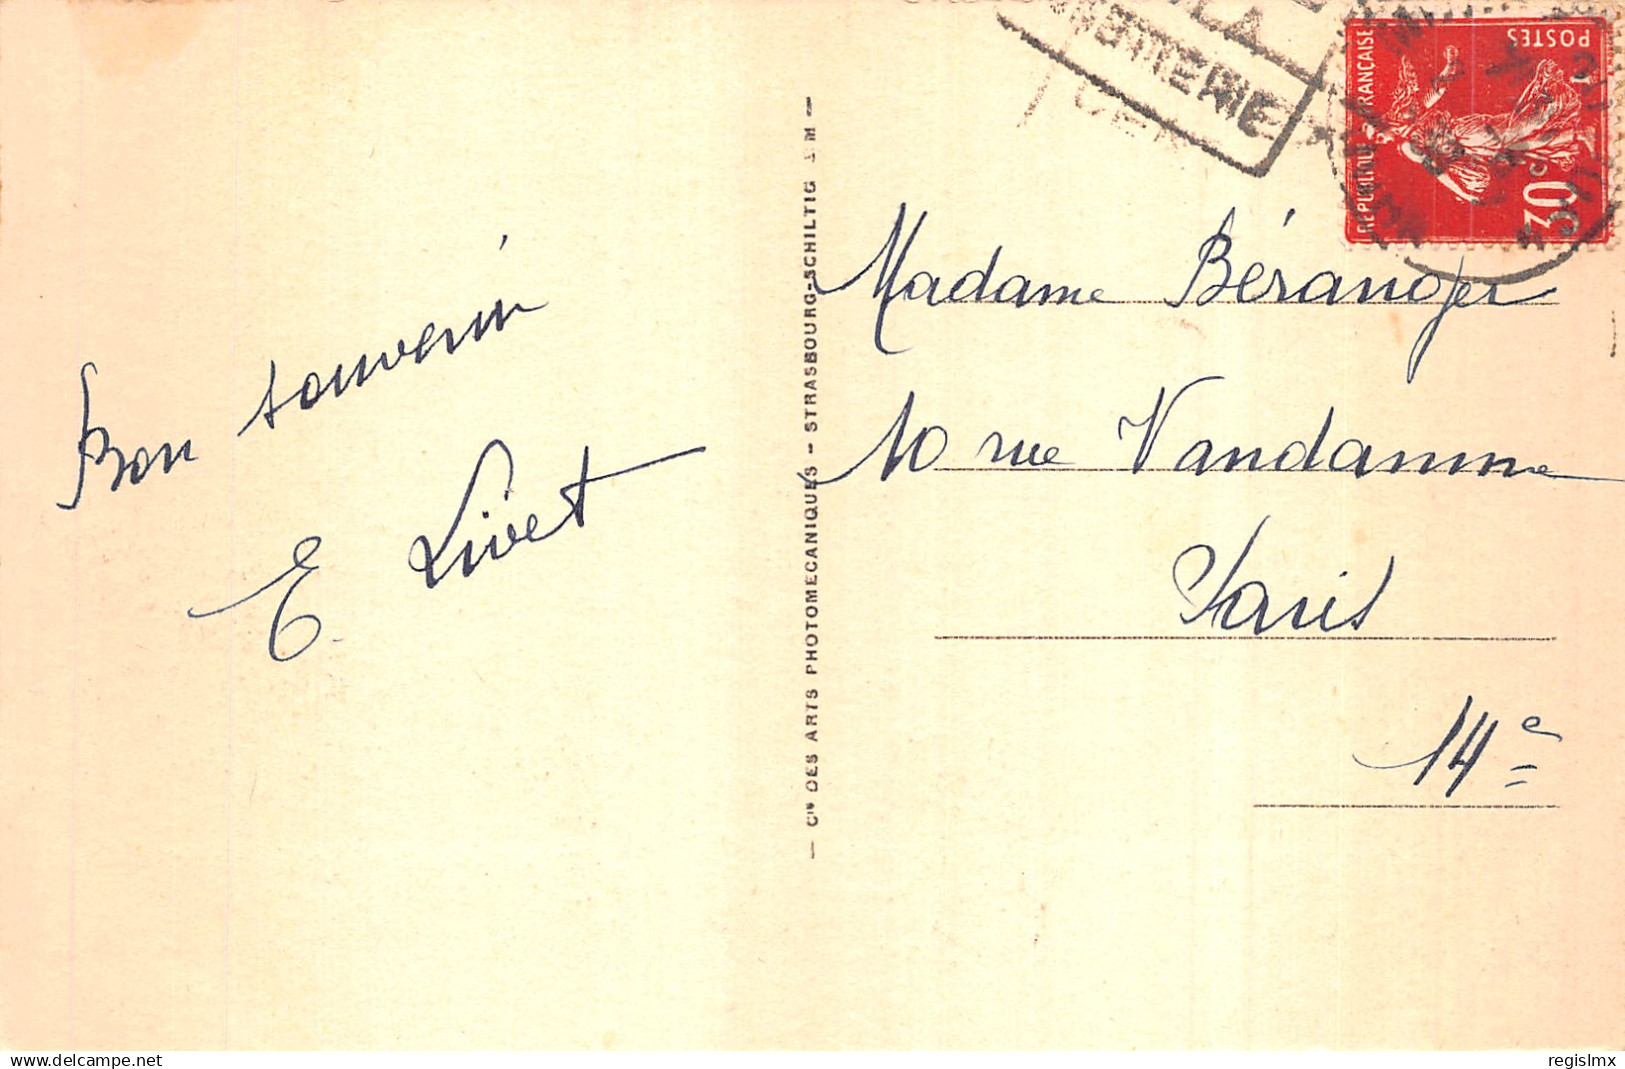 Bon souvenir
E. Livet
— Cie DES ARTS PHOTOMECANIQUES - STRASBOURG-SCHILTIG
POSTES
REPUBLIQUE FRANCAISE
30c
Madame Béranger
10 rue Vandamme
Paris
14e
http://www.delcampe.net
regislmx